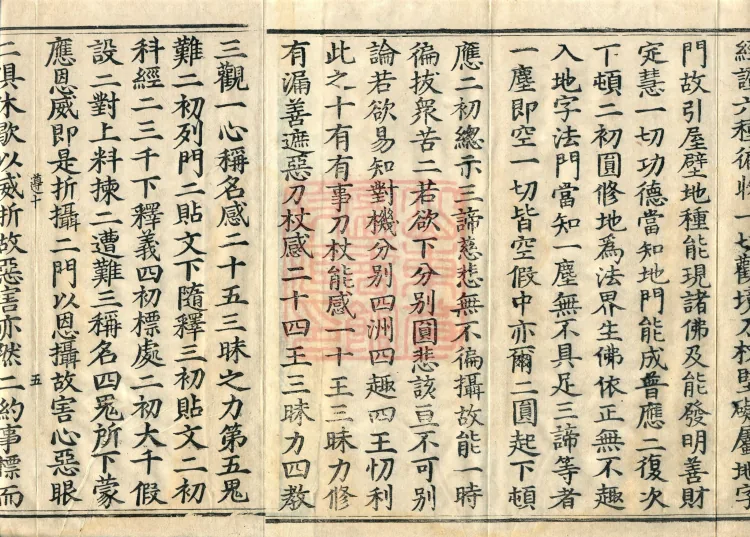 門故引屋壁地種能現諸佛及能發明善財
定慧一切功德當知地門能成普應二復次
下頓二初圓修地為法界生佛依正無不趣
入地字法門當知一塵無不具足三諦等者
一塵即空一切皆空假中亦爾二圓起下頓
應二初總示三諦慈悲無不徧攝故能一時
徧拔衆苦二若欲下分別圓悲該亘不可別
論若欲易知對機分別四洲四趣四王忉利
此之十有有事刀杖能感一十王三昧力修
有漏善遮惡刀杖感二十四王三昧力四教
三觀一心稱名感二十五三昧之力第五鬼
難二初列門二貼文下隨釋三初貼文二初
科經二三千下釋義四初標處二初大千假
設二對上料揀二遭難三稱名四冤所下蒙
應恩威即是折攝二門以恩攝故害心惡眼
尊十
五
二俱休歇以威折故惡害亦然二約事標而